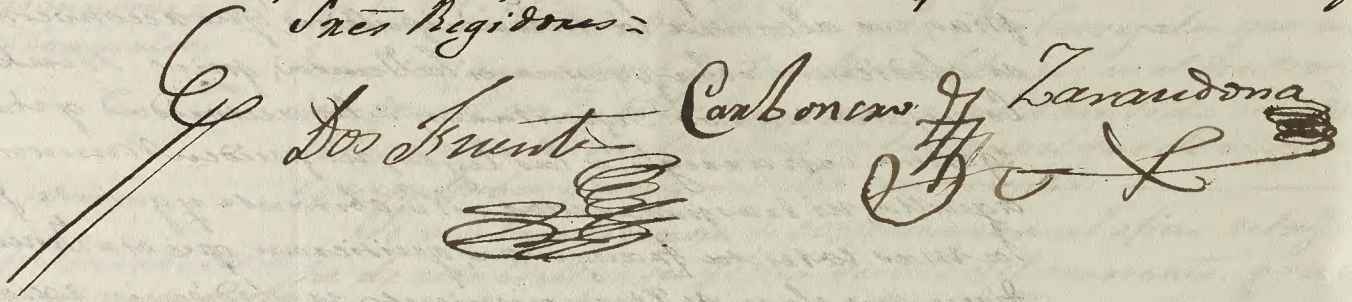 Snẽs Regidores =
Dos Fuente Carbonero Zarandona